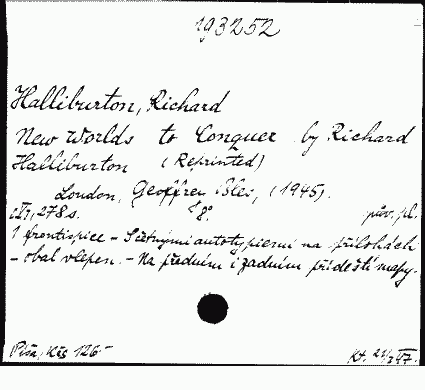 193252
Halliburton, Richard
New Worlds to Conquer by Richard
Halliburton (Reprinted)
London, Geoffrey Bles, (1945).
278 s. 8°. pův. pl.
1 frontispice - Sčetnými autotypiemi na přílohách
- obal vlepen. - Na předním i zadním přídeští mapy.
Píša, Kčs 126-
Kt.